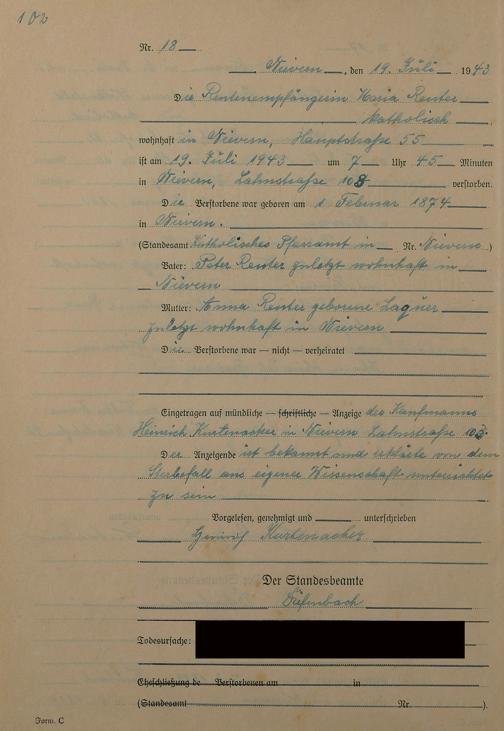 102
Nr. 18
Nievern, den 19. Juli 1943
Die Rentenempfängerin Maria Reuter
katholisch
wohnhaft in Nievern, Hauptstraße 55
ist am 19. Juli 1943 um 7 Uhr 45 Minuten
in Nievern, Lahnstraße 103 verstorben.
Die Verstorbene war geboren am 1 Februar 1874
in Nievern.
(Standesamt Katholisches Pfarramt in Nr. Nievern)
Vater: Peter Reuter zuletzt wohnhaft in
Nievern
Mutter: Anna Reuter geborene
zuletzt wohnhaft in Nievern
Die Verstorbene war — nicht — verheiratet
Eingetragen auf mündliche — schriftliche — Anzeige des Kaufmanns
Heinrich Kurtenacker in Nievern Lahnstraße 103
Der Anzeigende ist bekannt und erklärte von dem
Sterbefall aus eigener Wissenschaft unterrichtet
zu sein
Vorgelesen, genehmigt und unterschrieben
Heinrich Kurtenacker
Der Standesbeamte
Todesursache:
Eheschließung de Verstorbenen am in
(Standesamt Nr. ).
Form. C